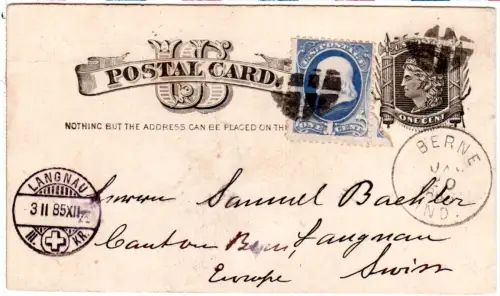 US
POSTAL CARD.
NOTHING BUT THE ADDRESS CAN BE PLACED ON TH
U.S. POSTAGE
ONE CENT
ONE CENT
BERNE
JA
IND.
LANGNAU
3 II 85 XII
III. KR.
Herrn Samuel Baehler
Canton Bern, Langnau
Europe Swiss